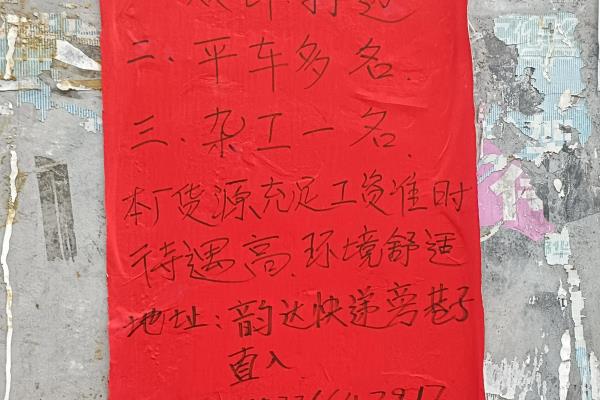 二、平车多名.
三、杂工一名.
本厂货源充足工资准时
待遇高.环境舒适
地址:韵达快递旁巷子
直入